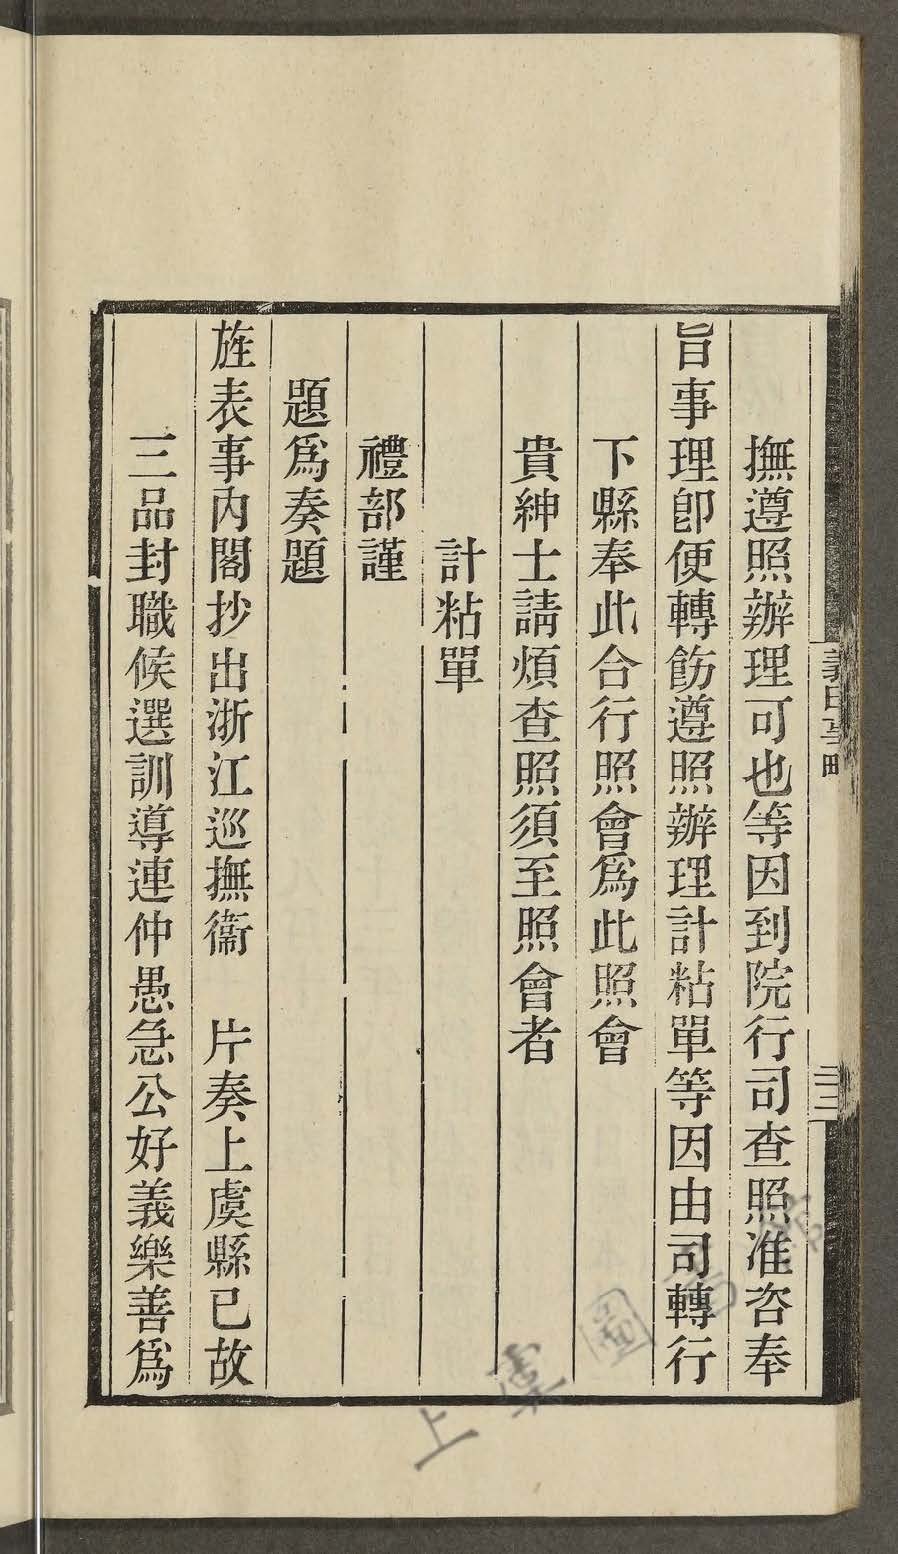 撫遵照辦理可也等因到院行司查照准咨奉
旨事理卽便轉飭遵照辦理計粘單等因由司轉行
下縣奉此合行照會爲此照會
貴紳士請煩查照須至照會者
計粘單
禮部謹
題爲奏題
旌表事內閣抄出浙江巡撫衞　片奏上虞縣已故
三品封職候選訓導連仲愚急公好義樂善爲
上虞圖書館